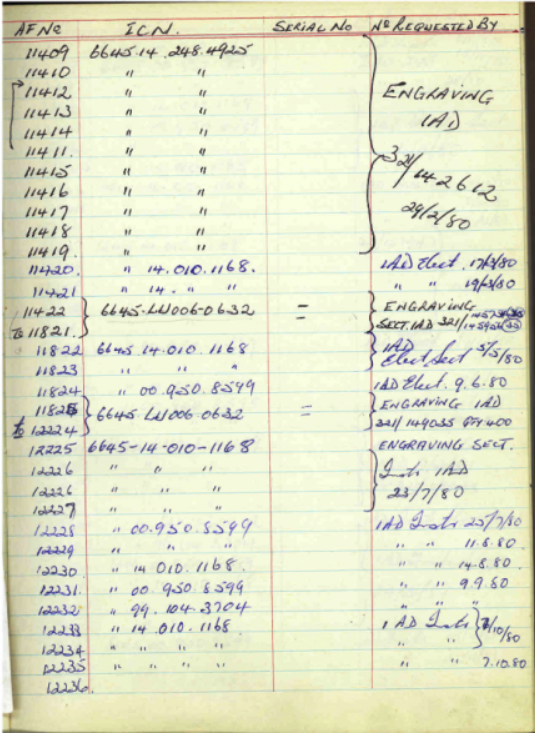 AF No I.C.N. SERIAL No No REQUESTED BY
11409 6645.14.248.4925
11410 " "
11412 " " ENGRAVING
11413 " " 1AD
11414 " "
11411. " "
11415 " " 321/142612
11416 " "
11417 " " 29/2/80
11418 " "
11419. " "
11420. " 14.010.1168. 1AD Elect. 17/3/80
11421 " 14. " " " " 19/3/80
11422 6645-LU006-0632 = ENGRAVING
To 11821. SECT. 1AD 321/
11822 6645.14.010.1168 1AD
11823 " " " Elect Sect 5/5/80
11824 " 00.950.8599 1AD Elect. 9.6.80
11825 6645 LU006.0632 = ENGRAVING 1AD
to 12224 321/149035 QTY 400
12225 6645-14-010-1168 ENGRAVING SECT.
12226 " " " Instr 1AD
12226 " " " 23/7/80
12227 " " "
12228 " 00.950.8599 1AD Instr 25/7/80
12229 " " " " " 11.8.80
12230 " 14 010.1168. " " 14.8.80
12231. " 00.950 8599 " " 9.9.80
12232 " 99.104.3704 " " "
12233 " 14.010.1168 1AD Instr /10/80
12234 " " " " " "
12235 " " " " " " 7.10.80
12236.